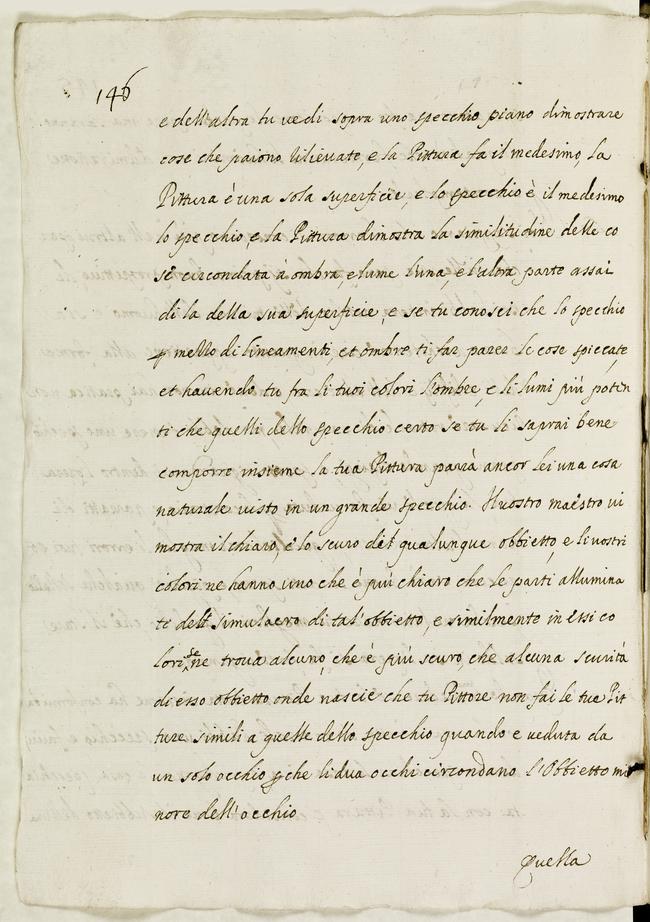 146
e dell'altra tu vedi sopra uno specchio piano dimostrare
cose che paiono rilievate, e la Pittura fa il medesimo, la
Pittura è una sola superficie, e lo specchio è il medesimo
lo specchio, e la Pittura dimostra la similitudine delle co
se circondata à ombra, e lume l'una, e l'altra parte assai
di la della sua superficie, e se tu conosci che lo specchio
p mezzo di lineamenti, et ombre ti far parer le cose spiccate,
et havendo tu fra li tuoi colori l'ombre, e li lumi più poten
ti che quelli dello specchio certo se tu li saprai bene
comporre insieme la tua Pittura parrà ancor lei una cosa
naturale visto in un grande specchio. Il vostro maestro vi
mostra il chiaro, e lo scuro del qualunque obbietto, e li vostri
colori ne hanno uno che è più chiaro che le parti allumina
te dell simulacro di tal'obbietto, e similmente in essi co
lori se ne trova alcuno, che è più scuro, che alcuna scurità
di esso obbietto onde nascie che tu Pittore non fai le tue Pit
ture simili a quelle dello specchio quando e veduta da
un solo occhio pche li dua occhi circondano l'Obbietto mi
nore dell'occhio
Quella